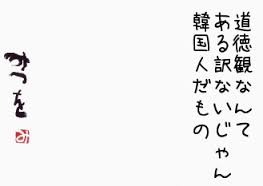 道徳観なんて
ある訳ないじゃん
韓国人だもの
みつを